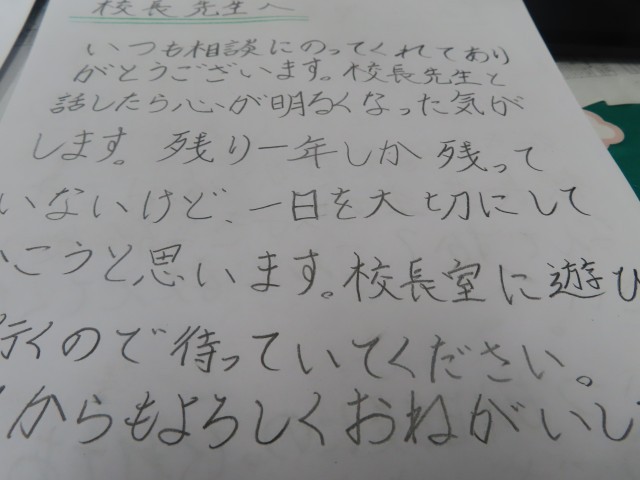 校長先生へ
いつも相談にのってくれてあり
がとうございます。校長先生と
話したら心が明るくなった気が
します。残り一年しか残って
いないけど、一日を大切にして
いこうと思います。校長室に遊び
行くので待っていてください。
からもよろしくおねがいし